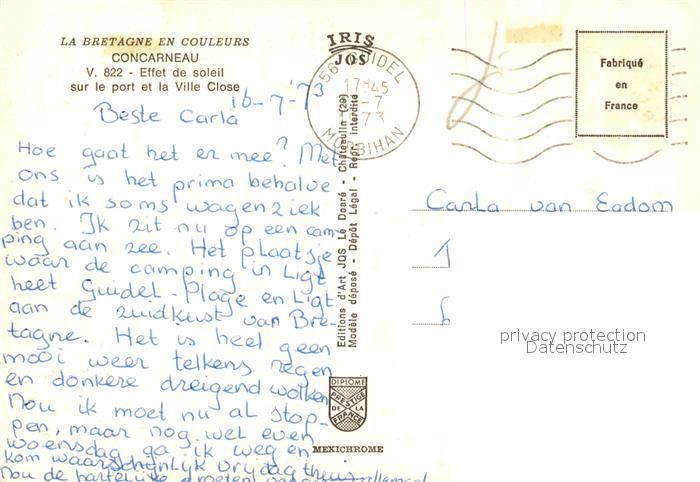 LA BRETAGNE EN COULEURS
CONCARNEAU
V. 822 - Effet de soleil
sur le port et la Ville Close
16-7-'73
Beste Carla
Hoe gaat het er mee? Met
ons is het prima behalve
dat ik soms wagenziek
ben. Ik zit nu op een cam-
ping aan zee. Het plaatsje
waar de camping in ligt
heet Guidel-Plage en ligt
aan de zuidkust van Bre-
tagne. Het is heel geen
mooi weer telkens regen
en donkere dreigend wolken
Nou ik moet nu al stop-
pen, maar nog wel even
woensdag ga ik weg en
kom waarschijnlijk vrijdag thuis
Nou de hartelijke groeten van allemaal
IRIS
JOS
Editions d'Art JOS Le Doaré - Châteaulin (29)
Modèle déposé - Dépôt Légal - Repr. interdite
DIPLOME
PRESTIGE
DE LA
FRANCE
MEXICHROME
56 GUIDEL
17H45
-7
73
MORBIHAN
Fabriqué
en
France
Carla van Eadom
privacy protection
Datenschutz